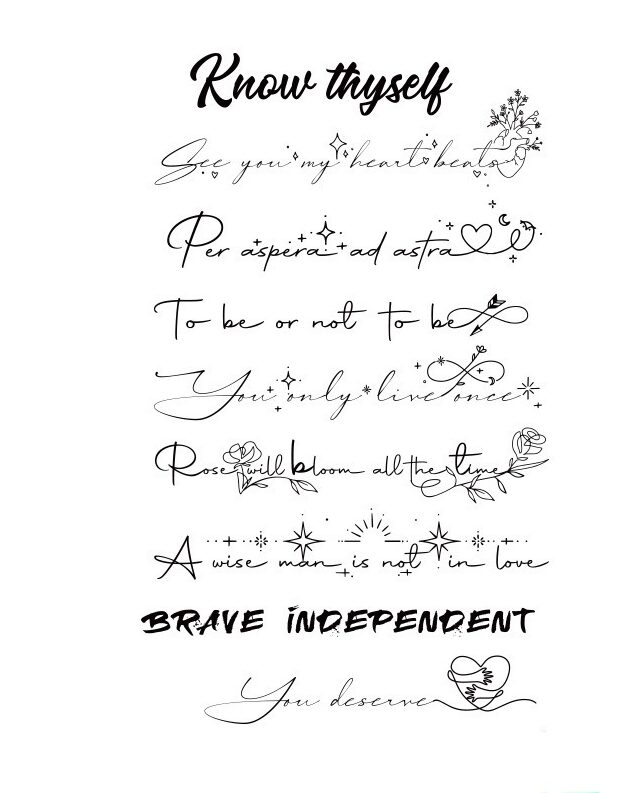 Know thyself
See you my heart beats
Per aspera ad astra
To be or not to be
You only live once
Rose will bloom all the time
A wise man is not in love
BRAVE INDEPENDENT
You deserve